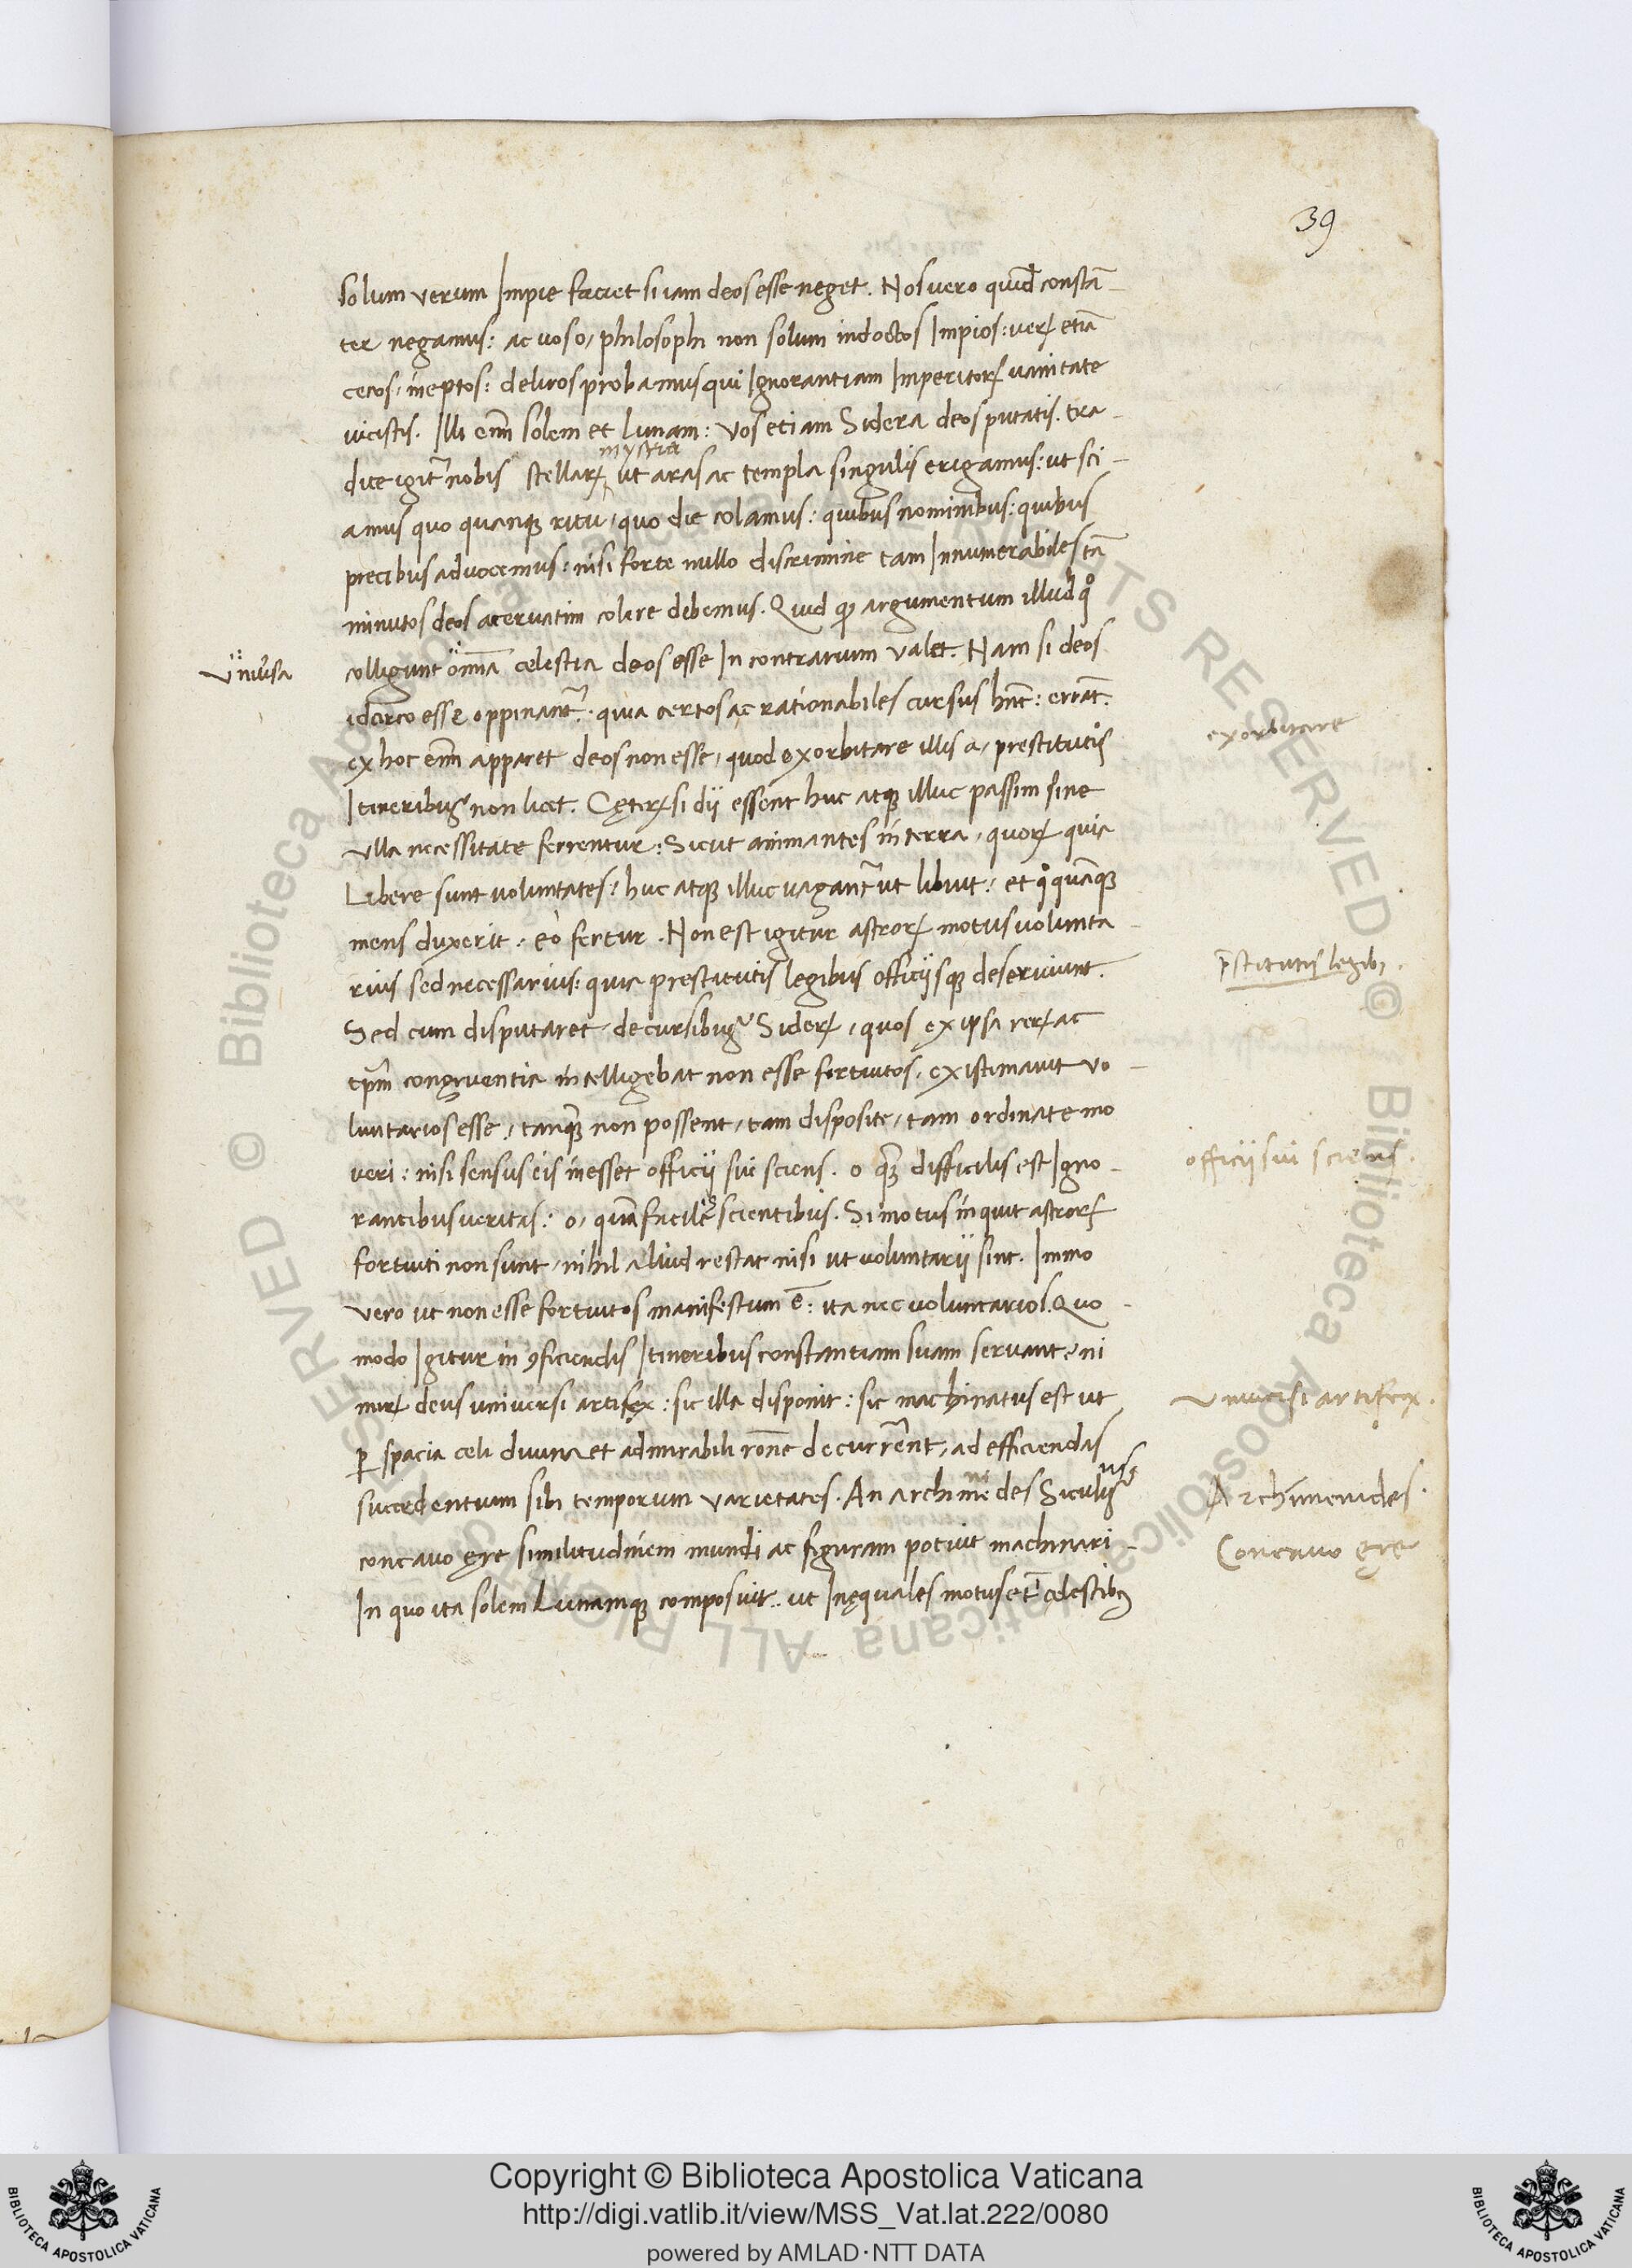 39
solum verum Impie faciet si iam deos esse neget. Nos vero quid constā-
ter negamus: ac vos o, philosophi non solum indoctos Impios: veꝝ etiā
cecos, ineptos: deliros probamus qui Ignorantiam Imperitoꝝ vanitate
vicistis. Illi enī solem et Lunam: vos etiam Sidera deos putatis. tra-
mystria
dite igit̄ nobis stellaꝝ ut aras ac templa singulis erigamus: ut sci-
amus quo quanqꝫ ritu, quo die colamus: quibus nominibus: quibus
precibus advocemus: nisi forte nullo discrimine tam Innumerabiles tā
minutos deos acervatim colere debemus. Quid ꝙ argumentum illud qͦ
Univ̄sa
colligunt om̄ia celestia deos esse In contrarium valet. Nam si deos
idcirco esse oppinant̄. quia certos ac rationabiles cursus hn̄t: errāt.
ex hoc enī apparet deos non esse, quod exorbitare illis a, prestitutis
exorbitare
Itineribus non licet. Cęteꝝ si dij essent huc atqꝫ illuc passim sine
ulla necessitate ferrentur: Sicut animantes in terra, quoꝝ quia
Libere sunt voluntates: huc atqꝫ illuc vagant̄ ut libuit: et qͦ quāqꝫ
mens duxerit: eò fertur. Non est igitur astroꝝ motus volunta-
rius sed necessarius: quia prestitutis legibus officijsqꝫ deserviunt.
p̄stitutis legibꝫ.
Sed cum disputaret de cursibus Sideꝝ, quos ex ipsa reꝝ ac
tp̄m congruentia intelligebat non esse fortuitos, existimavit vo-
luntarios esse, tanqꝫ non possent, tam disposite, tam ordinate mo
veri: nisi sensus eis inesset officij sui sciens. o qꝫ difficilis est Igno-
officij sui sciens.
rantibus veritas: o, quā facilis scientibus. Si motus inquit astroꝝ
fortuiti non sunt, nihil aliud restat nisi ut voluntarij sint. Immo
vero ut non esse fortuitos manifestum ē: ita nec voluntarios. Quo-
modo Igitur in ꝯficiendis Itineribus constantiam suam servant, ni
miꝝ deus universi artifex: sic illa disponit: sic machinatus est ut
universi artifex.
ꝑ spacia celi divina et admirabili rōne decurrent, ad efficiendas
succedentium sibi temporum varietates. An archimenides Siculus
Archimenides.
concavo ęre similitudinem mundi ac figuram potuit machinari-
Concavo ęre
In quo ita solem Lunamqꝫ composuit: ut Inęquales motus et celestibꝫ
Copyright © Biblioteca Apostolica Vaticana
http://digi.vatlib.it/view/MSS_Vat.lat.222/0080
powered by AMLAD·NTT DATA
BIBLIOTECA APOSTOLICA VATICANA
BIBLIOTECA APOSTOLICA VATICANA